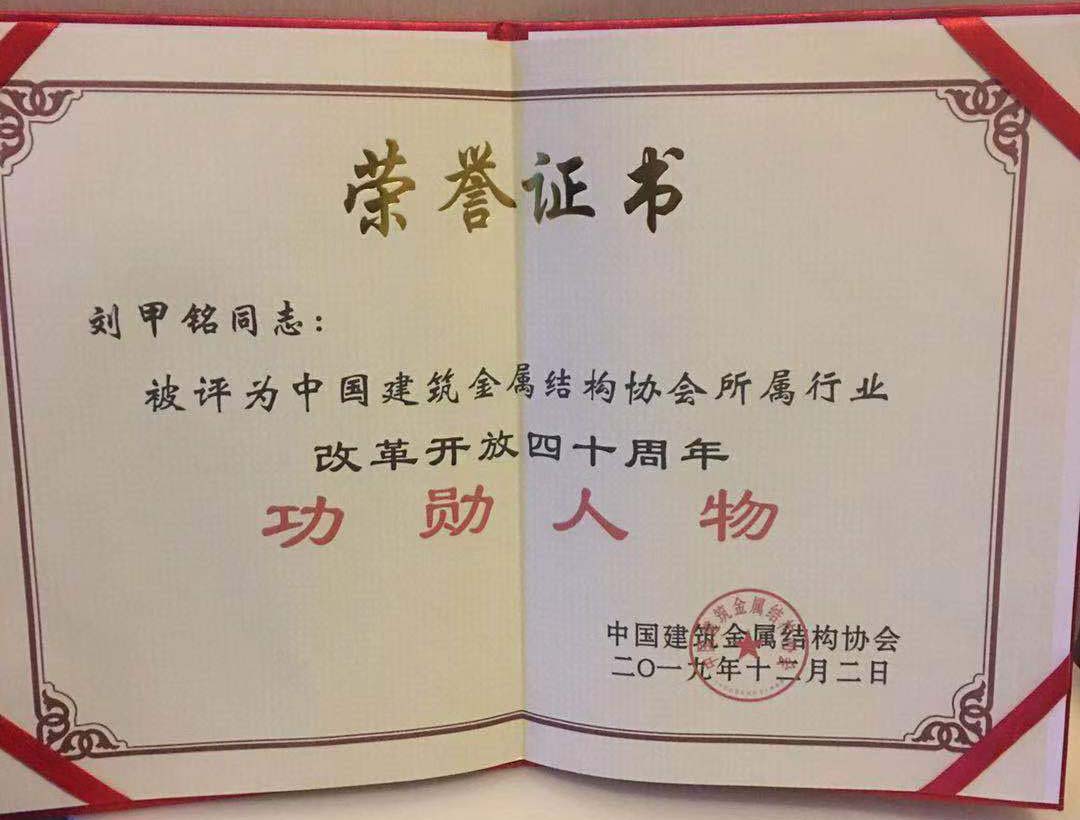 荣誉证书
刘甲铭同志：
被评为中国建筑金属结构协会所属行业
改革开放四十周年
功勋人物
中国建筑金属结构协会
二〇一九年十二月二日
中国建筑金属结构协会